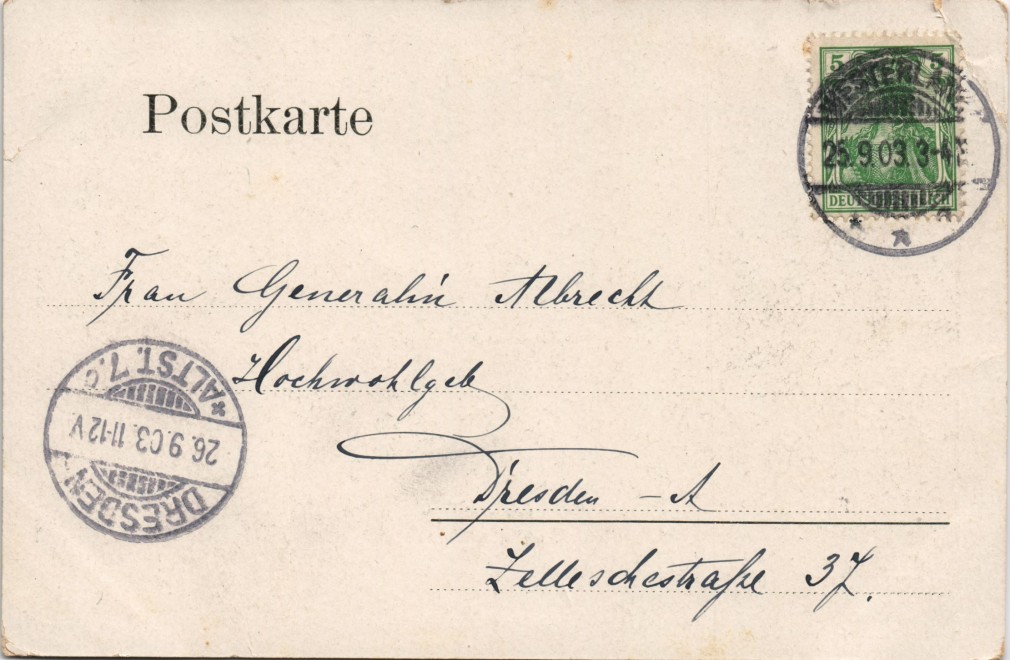 Postkarte
5 5
WESTERLAND
25.9.03. 3-4 N
DEUTSCHES REICH
Frau Generalin Albrecht
Hochwohlgeb
*ALTST. 7. c
26.9.03. 11-12 V
DRESDEN-
Dresden - A
Zelleschestraße 37.